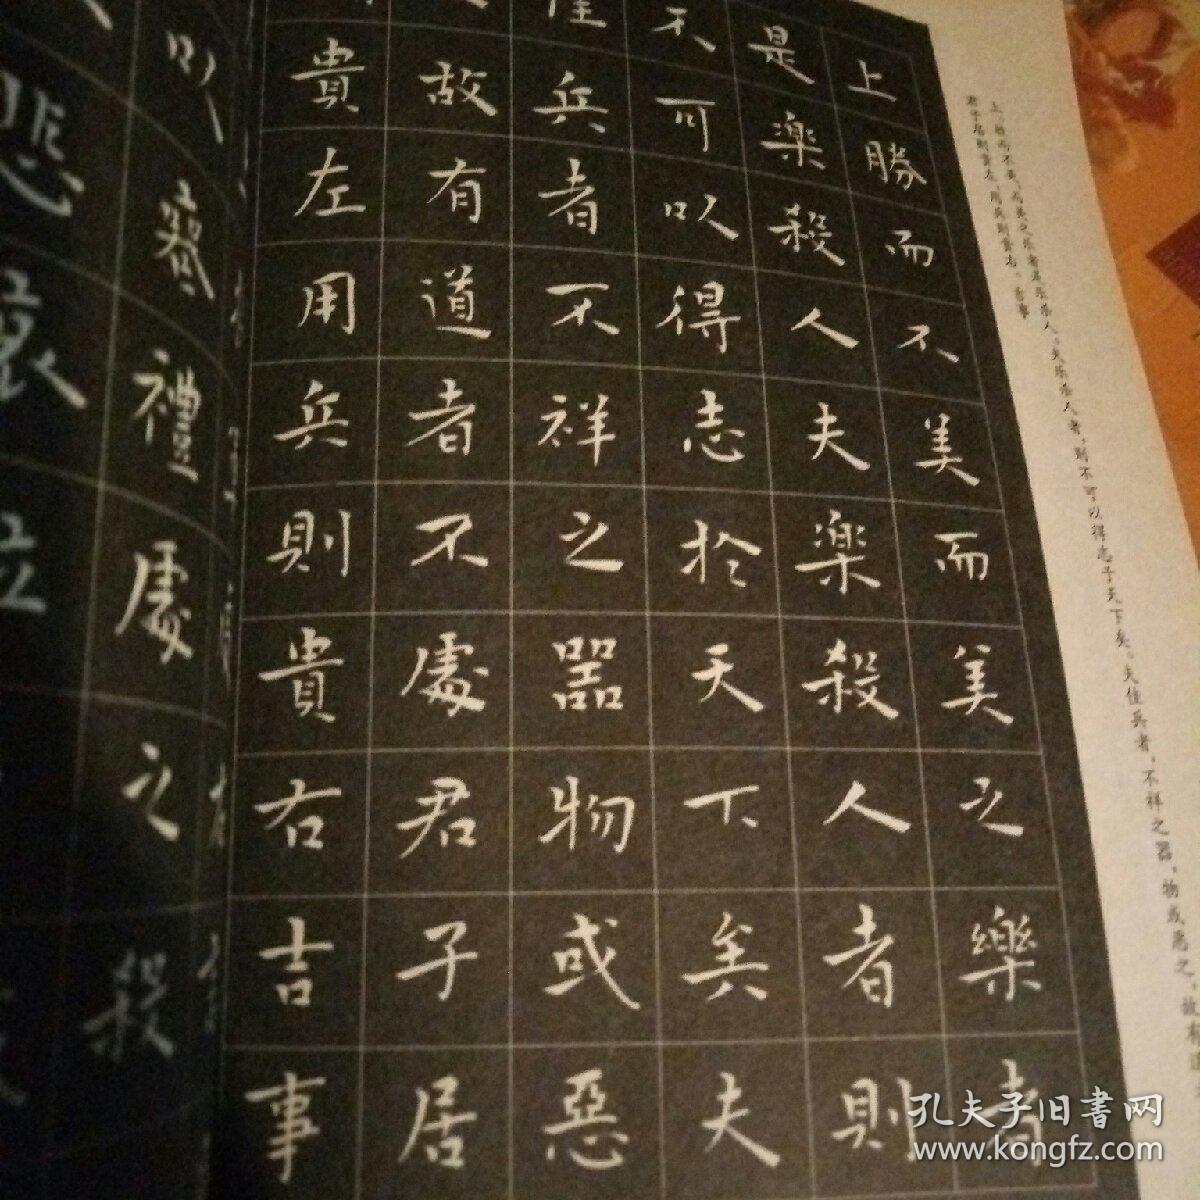 上，胜而不美，而美之乐者是乐杀人。夫乐杀人者，则不可以得志于天下矣。夫佳兵者，不祥之器，物或恶之，故有道
君子居则贵左，用兵则贵右。吉事
上勝而不美而美之樂者
是樂殺人夫樂殺人者則
不可以得志於天下矣夫
佳兵者不祥之器物或惡
故有道者不處君子居
貴左用兵則貴右吉事
以喪禮處之殺
悲哀泣
孔夫子旧书网
www.kongfz.com